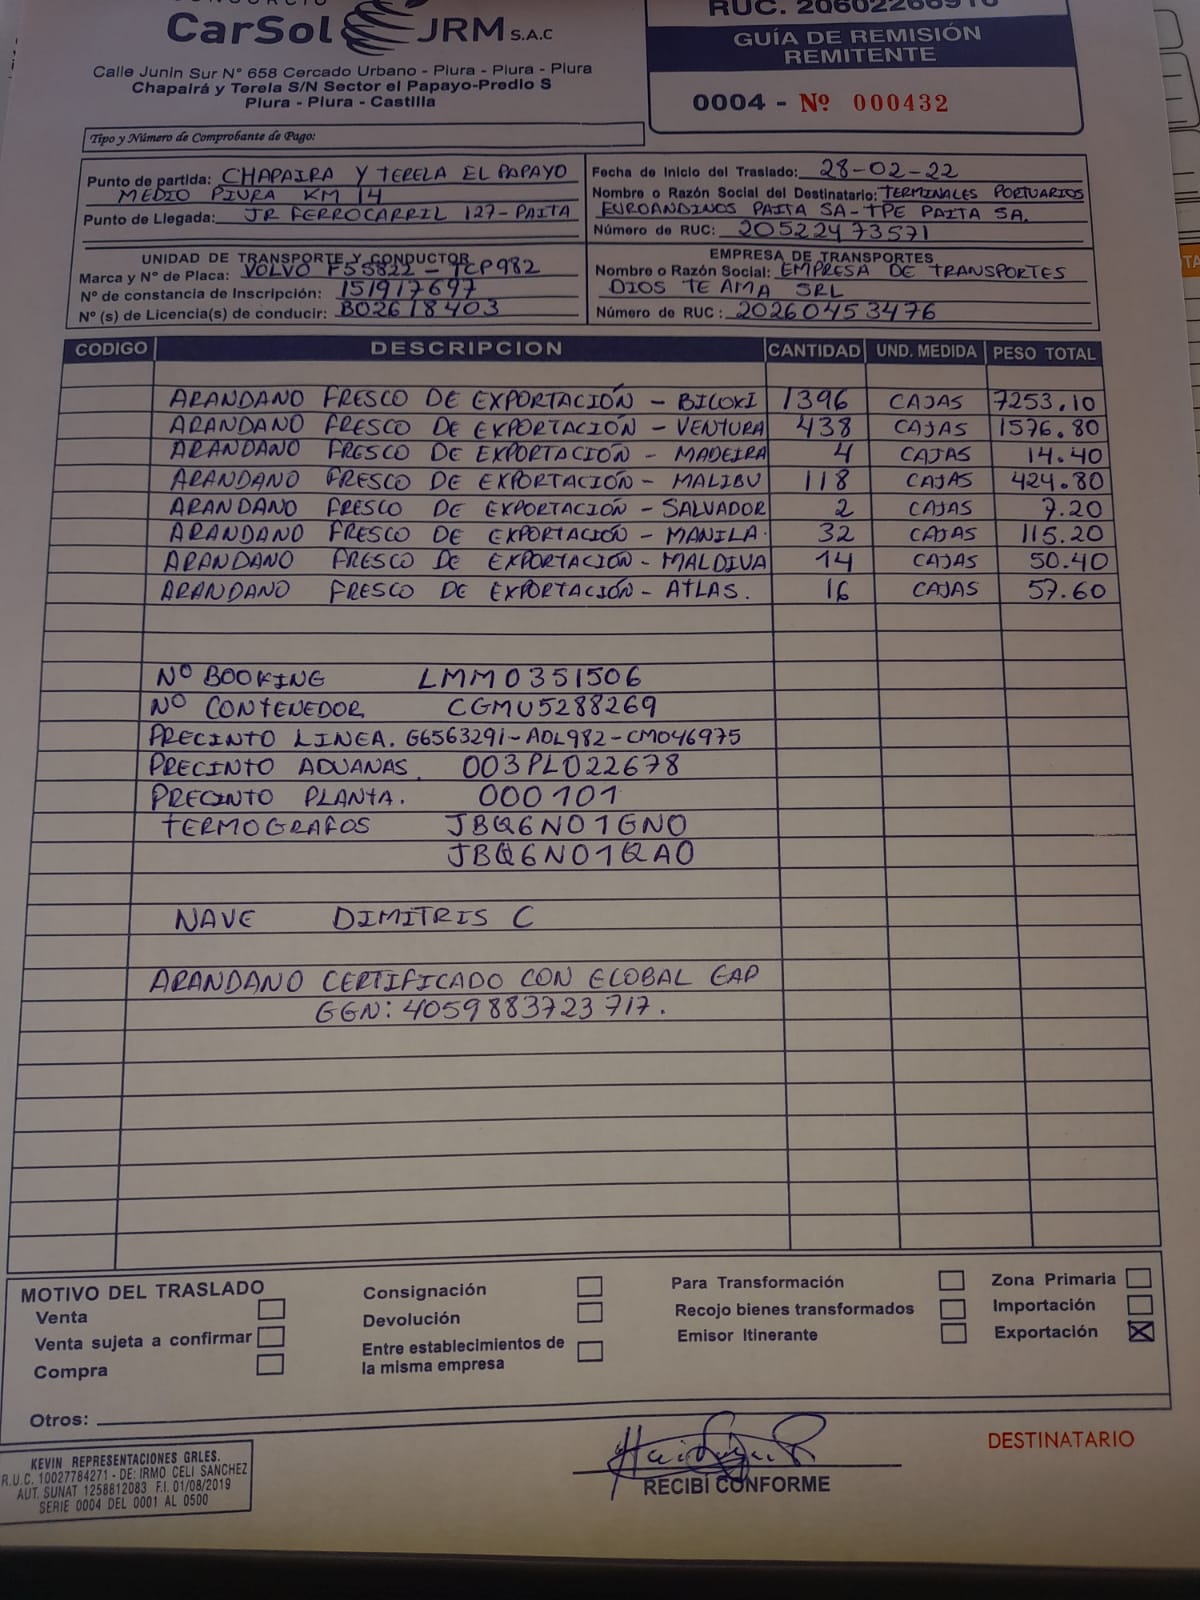 CarSol JRM S.A.C
Calle Junin Sur Nº 658 Cercado Urbano - Piura - Piura - Piura
Chapairá y Terela S/N Sector el Papayo-Predio S
Piura - Piura - Castilla
GUÍA DE REMISIÓN
REMITENTE
0004 - Nº 000432
Tipo y Número de Comprobante de Pago:
Punto de partida: CHAPAIRA Y TERELA EL PAPAYO
MEDIO PIURA KM 14
Punto de Llegada: JR FERROCARRIL 127-PAITA
Fecha de Inicio del Traslado: 28-02-22
Nombre o Razón Social del Destinatario: TERMINALES PORTUARIOS
EUROANDINOS PAITA SA-TPE PAITA SA.
Número de RUC: 20522473571
UNIDAD DE TRANSPORTE Y CONDUCTOR
Marca y Nº de Placa: VOLVO F5S822 - TCP982
Nº de constancia de Inscripción: 151917697
Nº (s) de Licencia(s) de conducir: B02618403
EMPRESA DE TRANSPORTES
Nombre o Razón Social: EMPRESA DE TRANSPORTES
DIOS TE AMA SRL
Número de RUC : 20260453476
CODIGO DESCRIPCION CANTIDAD UND. MEDIDA PESO TOTAL
ARANDANO FRESCO DE EXPORTACIÓN - BILOXI 1396 CAJAS 7253.10
ARANDANO FRESCO DE EXPORTACIÓN - VENTURA 438 CAJAS 1576.80
ARANDANO FRESCO DE EXPORTACIÓN - MADEIRA 4 CAJAS 14.40
ARANDANO FRESCO DE EXPORTACIÓN - MALIBU 118 CAJAS 424.80
ARANDANO FRESCO DE EXPORTACIÓN - SALVADOR 2 CAJAS 7.20
ARANDANO FRESCO DE EXPORTACIÓN - MANILA. 32 CAJAS 115.20
ARANDANO FRESCO DE EXPORTACIÓN - MALDIVA 14 CAJAS 50.40
ARANDANO FRESCO DE EXPORTACIÓN - ATLAS. 16 CAJAS 57.60
Nº BOOKING LMM0351506
Nº CONTENEDOR CGMU5288269
PRECINTO LINEA. G6563291-ADL982-CM046975
PRECINTO ADUANAS. 003PL022678
PRECINTO PLANTA. 000101
TERMOGRAFOS JBQ6N01GN0
JBQ6N01QA0
NAVE DIMITRIS C
ARANDANO CERTIFICADO CON GLOBAL GAP
GGN: 4059883723717.
MOTIVO DEL TRASLADO
Venta
Venta sujeta a confirmar
Compra
Consignación
Devolución
Entre establecimientos de
la misma empresa
Para Transformación
Recojo bienes transformados
Emisor Itinerante
Zona Primaria
Importación
Exportación X
Otros:
RECIBÍ CONFORME
DESTINATARIO
KEVIN REPRESENTACIONES GRLES.
R.U.C. 10027784271 - DE: IRMO CELI SANCHEZ
AUT. SUNAT 1258812083 F.I. 01/08/2019
SERIE 0004 DEL 0001 AL 0500